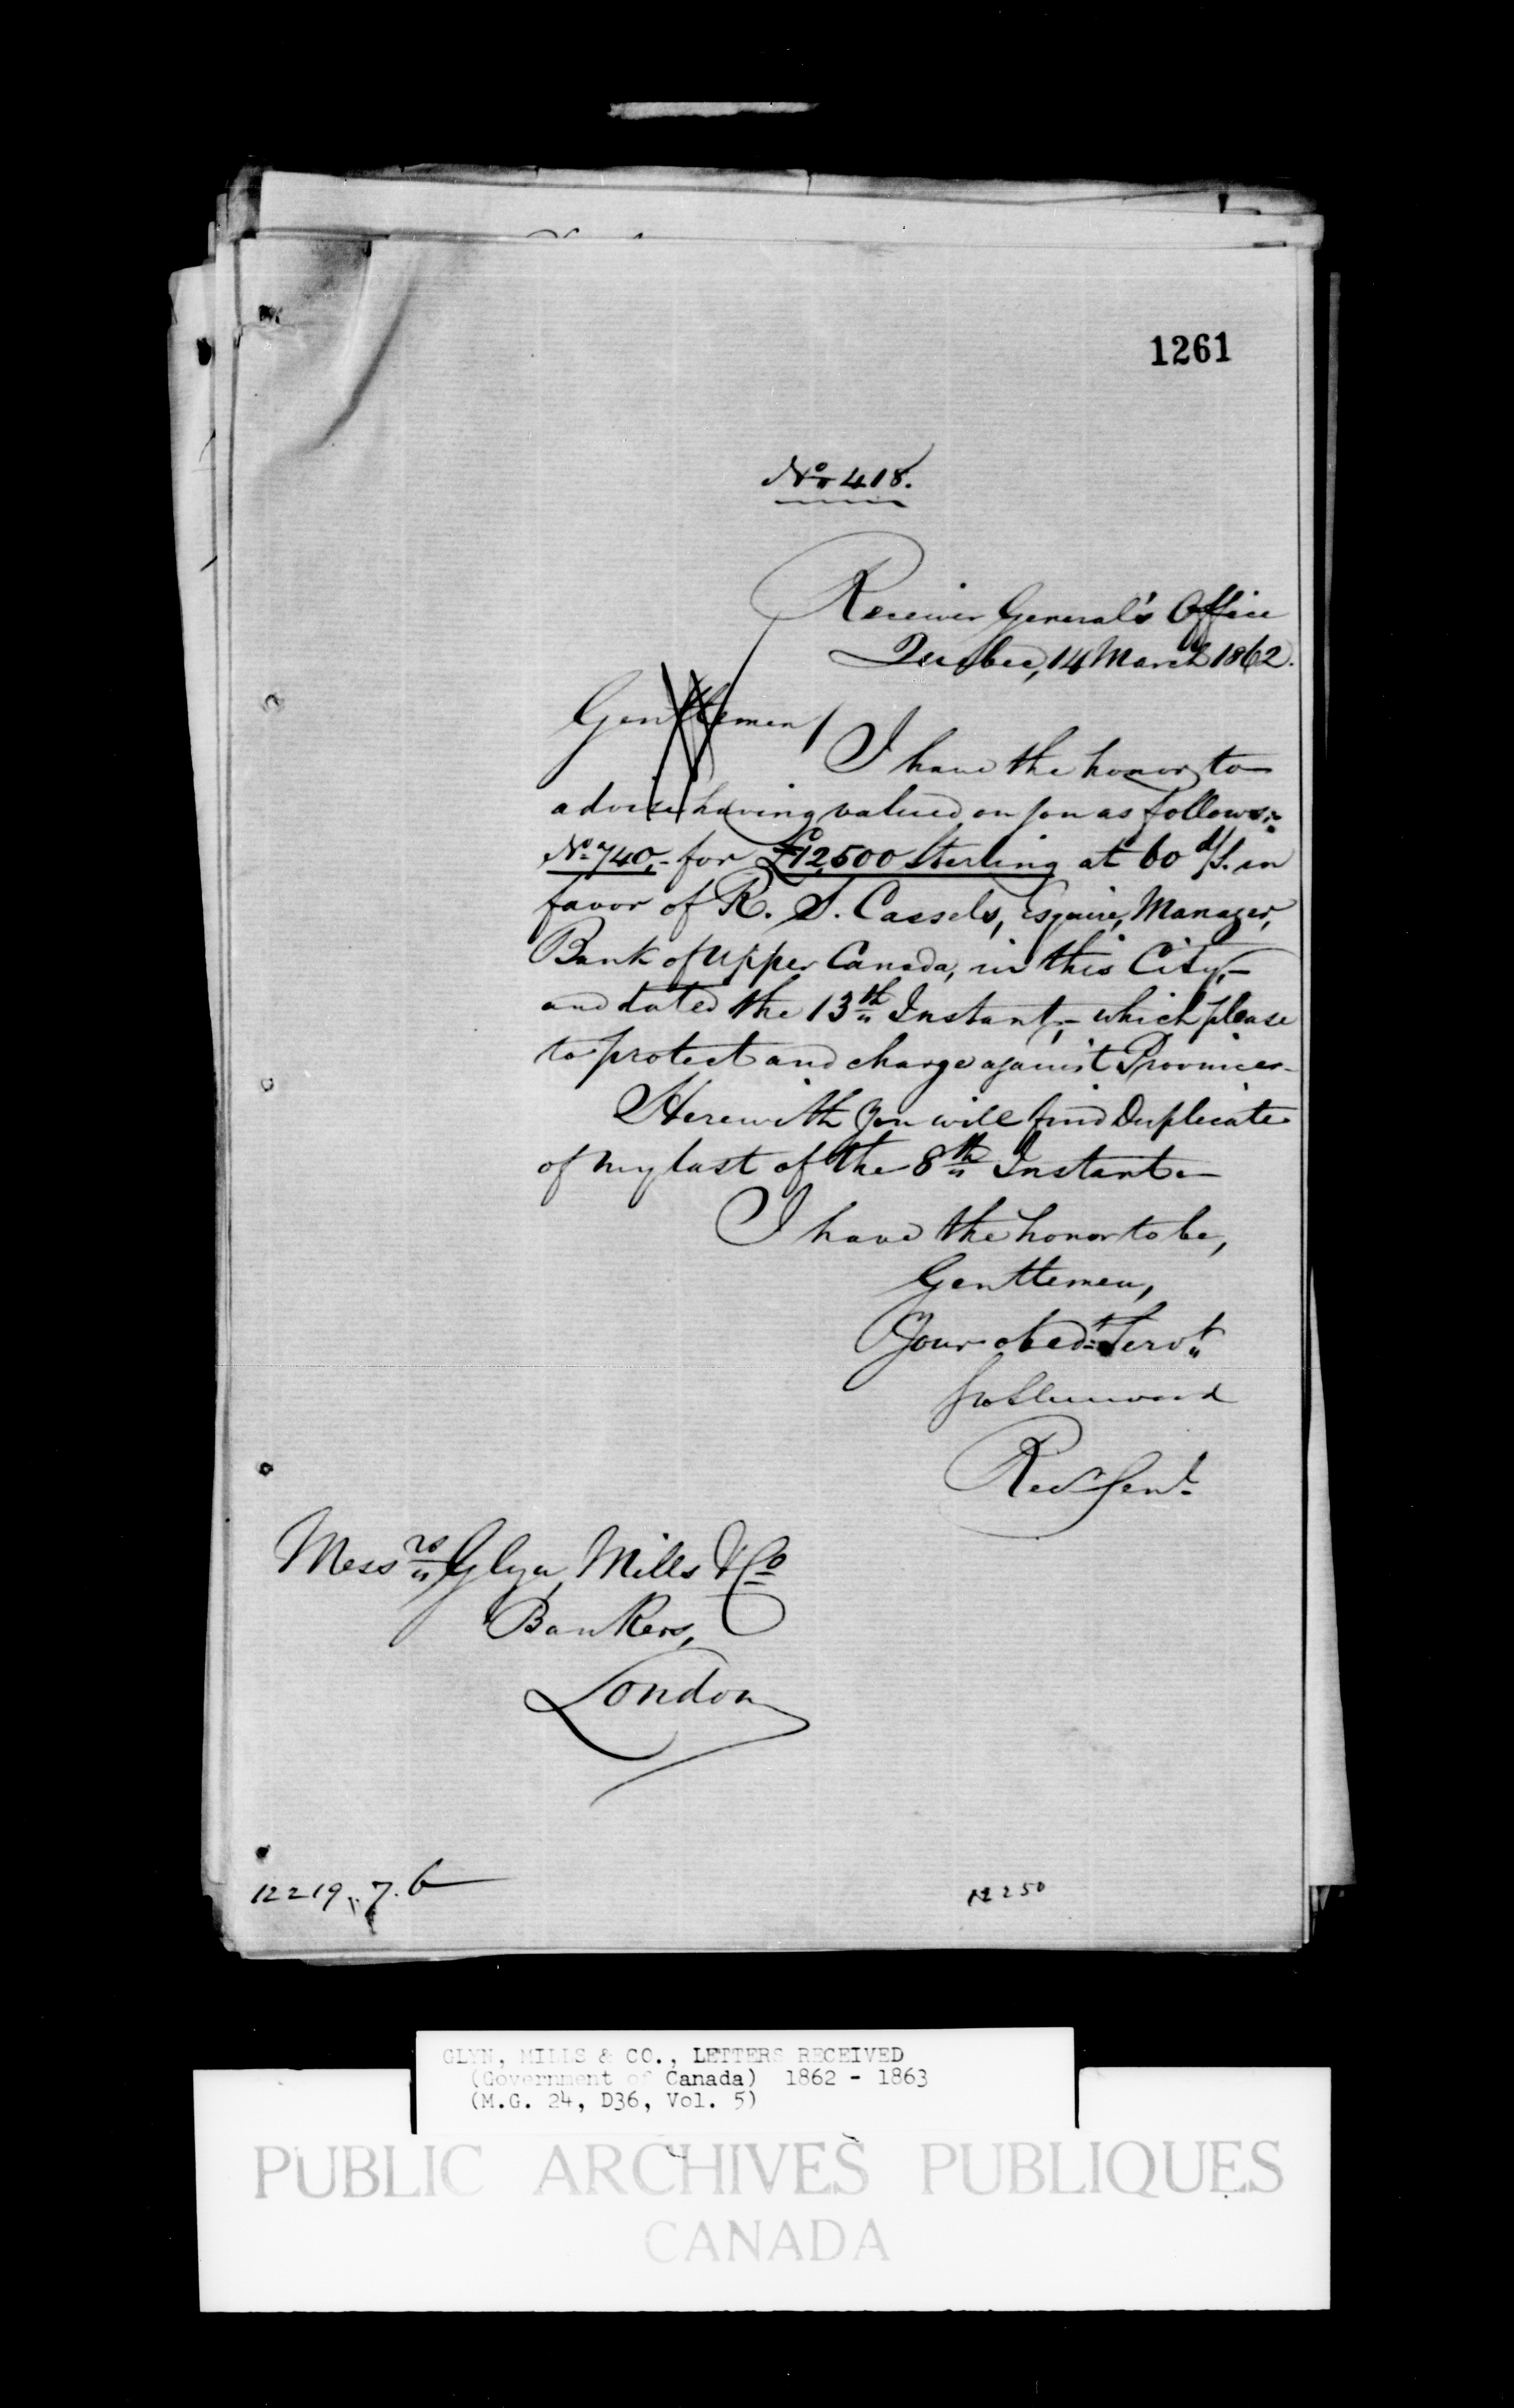 1261
No 418.
Receiver General's Office
Quebec, 14 March 1862.
Gentlemen,
I have the honor to
advise having valued on you as follows:-
No 740,- for £12,500 Sterling at 60 d/s. in
favor of R. S. Cassels, Esquire, Manager,
Bank of Upper Canada, in this City,-
and dated the 13th Instant,- which please
to protect and charge against Province.-
Herewith you will find Duplicate
of my last of the 8th Instant.-
I have the honor to be,
Gentlemen,
Your obedt Servt
Recr Genl
Messrs Glyn, Mills & Co
Bankers,
London
12219.7.6
12250
GLYN, MILLS & CO., LETTERS RECEIVED
(Government of Canada) 1862 - 1863
(M.G. 24, D36, Vol. 5)
PUBLIC ARCHIVES PUBLIQUES
CANADA